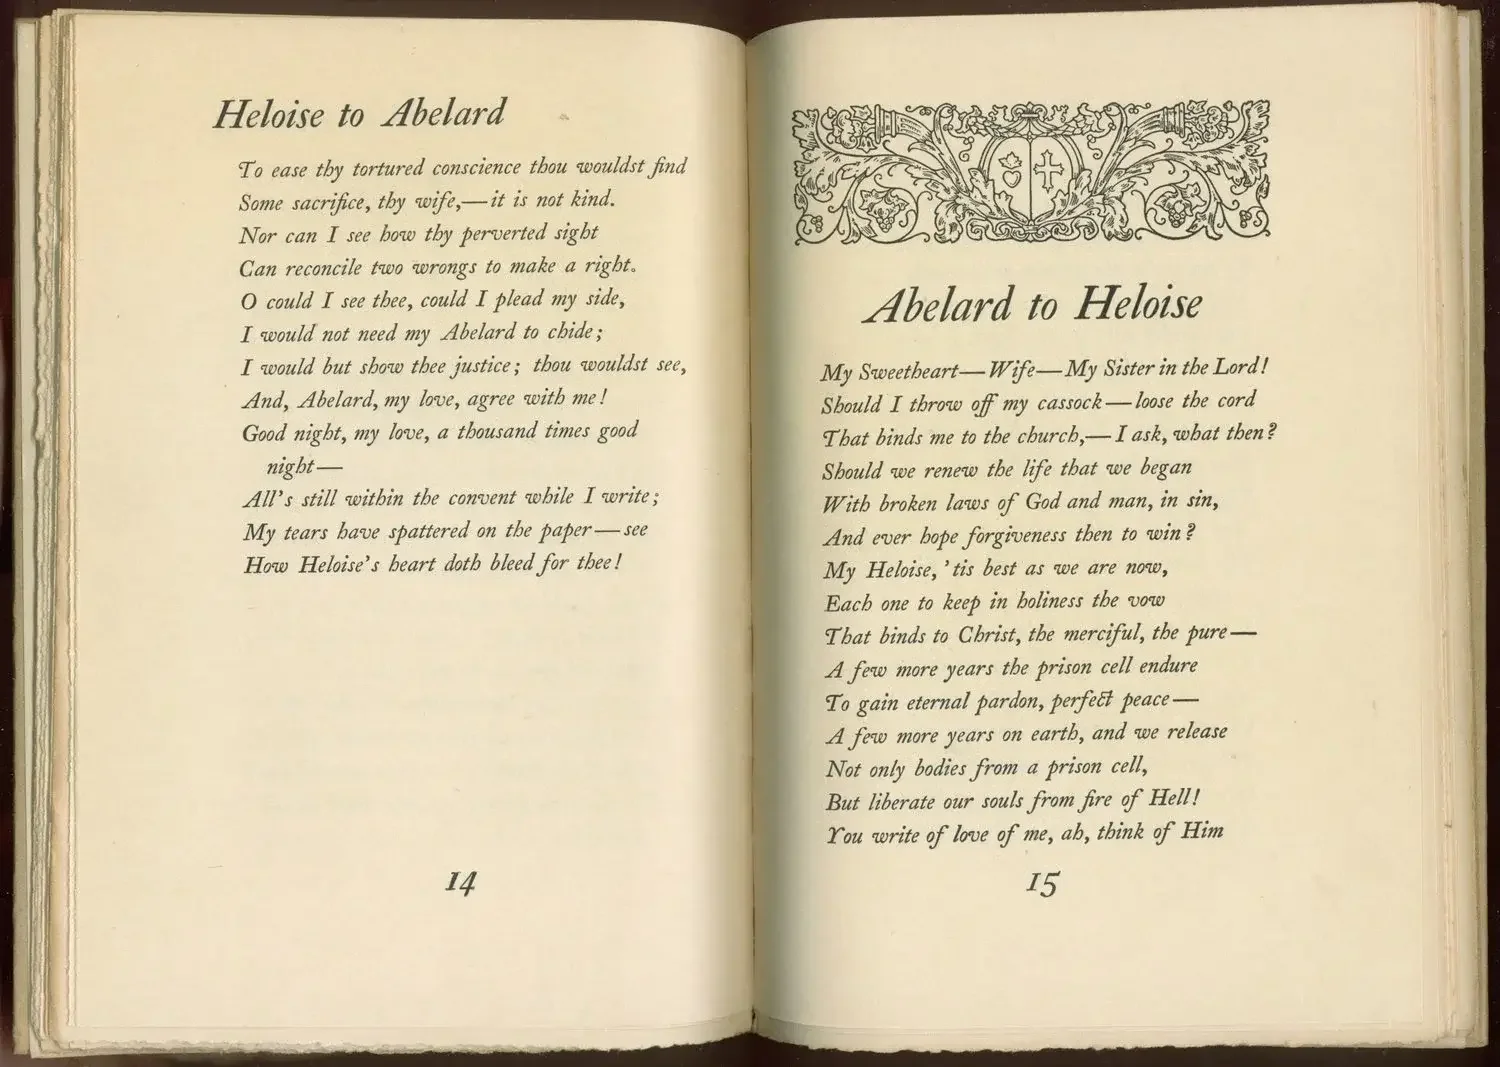 Heloise to Abelard
To ease thy tortured conscience thou wouldst find
Some sacrifice, thy wife,—it is not kind.
Nor can I see how thy perverted sight
Can reconcile two wrongs to make a right.
O could I see thee, could I plead my side,
I would not need my Abelard to chide;
I would but show thee justice; thou wouldst see,
And, Abelard, my love, agree with me!
Good night, my love, a thousand times good
night—
All's still within the convent while I write;
My tears have spattered on the paper—see
How Heloise's heart doth bleed for thee!
14
Abelard to Heloise
My Sweetheart—Wife—My Sister in the Lord!
Should I throw off my cassock—loose the cord
That binds me to the church,—I ask, what then?
Should we renew the life that we began
With broken laws of God and man, in sin,
And ever hope forgiveness then to win?
My Heloise, 'tis best as we are now,
Each one to keep in holiness the vow
That binds to Christ, the merciful, the pure—
A few more years the prison cell endure
To gain eternal pardon, perfect peace—
A few more years on earth, and we release
Not only bodies from a prison cell,
But liberate our souls from fire of Hell!
You write of love of me, ah, think of Him
15